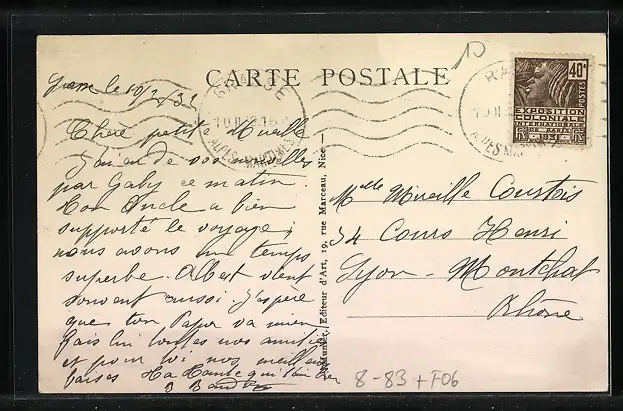 CARTE POSTALE
Grasse le 10/2/32
Chère petite Mireille
J'ai eu de vos nouvelles
par Gaby ce matin.
Ton Oncle a bien
supporté le voyage,
nous avons un temps
superbe. Albert vient
souvent aussi. J'espère
que ton Papa va mieux
fais lui toutes nos amitiés
et pour toi nos meilleurs
baisers Ta Tante qui t'aime bien
B
Editeur d'Art, 19, rue Marceau, Nice
GRASSE
ALPES-MARITIMES
40c
POSTES
EXPOSITION
COLONIALE
INTERNATIONALE
DE PARIS
1931
Mlle Mireille Courtois
54 Cours Henri
Lyon - Montchat
Rhône
8-83 + F06